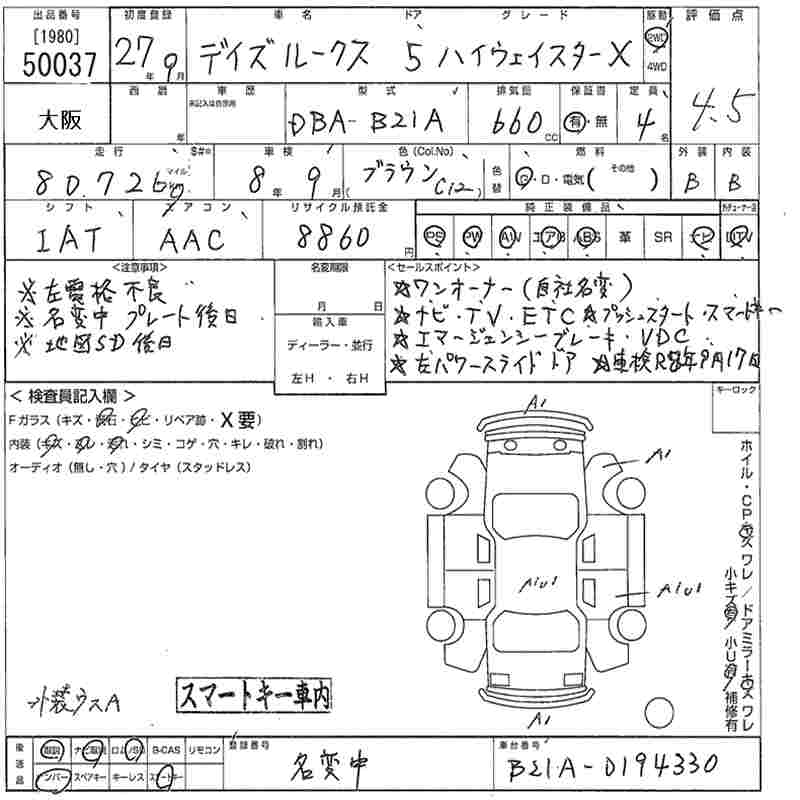 出品番号 初度登録 車名 ドア グレード 駆動 評価点
[1980] 50037 27年9月 デイズルークス 5 ハイウェイスターX 2WD 4WD 4.5
大阪 西暦 年 車歴 未記入は自家用 型式 DBA-B21A 排気量 660cc 保証書 有・無 定員 4名
走行 S#※ 車検 色(Col.No) 燃料 外装 内装
80,726 マイル km 8年9月 ブラウン(C12) 色替 G・D・電気( その他 ) B B
シフト エアコン リサイクル預託金 純正装備品
IAT AAC 8860円 PS PW AW エアB ABS 革 SR ナビ TV
<注意事項> 名変期限 <セールスポイント>
※左震格不良 ☆ワンオーナー(自社名変)
※名変中プレート後日 月 日 ☆ナビ・TV・ETC ☆プッシュスタート・スマートキー
※地図SD後日 輸入車 ☆エマージェンシーブレーキ・VDC
ディーラー・並行 ☆左パワースライドドア ☆車検R8年9月17日
左H・右H
<検査員記入欄> キーロック
Fガラス(キズ・飛石・ヒビ・リペア跡・X要)
内装(キズ・スレ・汚れ・シミ・コゲ・穴・キレ・破れ・割れ)
オーディオ(無し・穴)/タイヤ(スタッドレス)
A1
A1
A1U1
A1U1
A1
ホイル・CPキズワレ/ドアミラーキズワレ
小キズ有/小U有/補修有
外装ウスA スマートキー車内
後送品 取説 ナビ取説 ロム/SD B-CAS リモコン 登録番号 車台番号
ナンバー スペアキー キーレス スマートキー 名変中 B21A-0194330